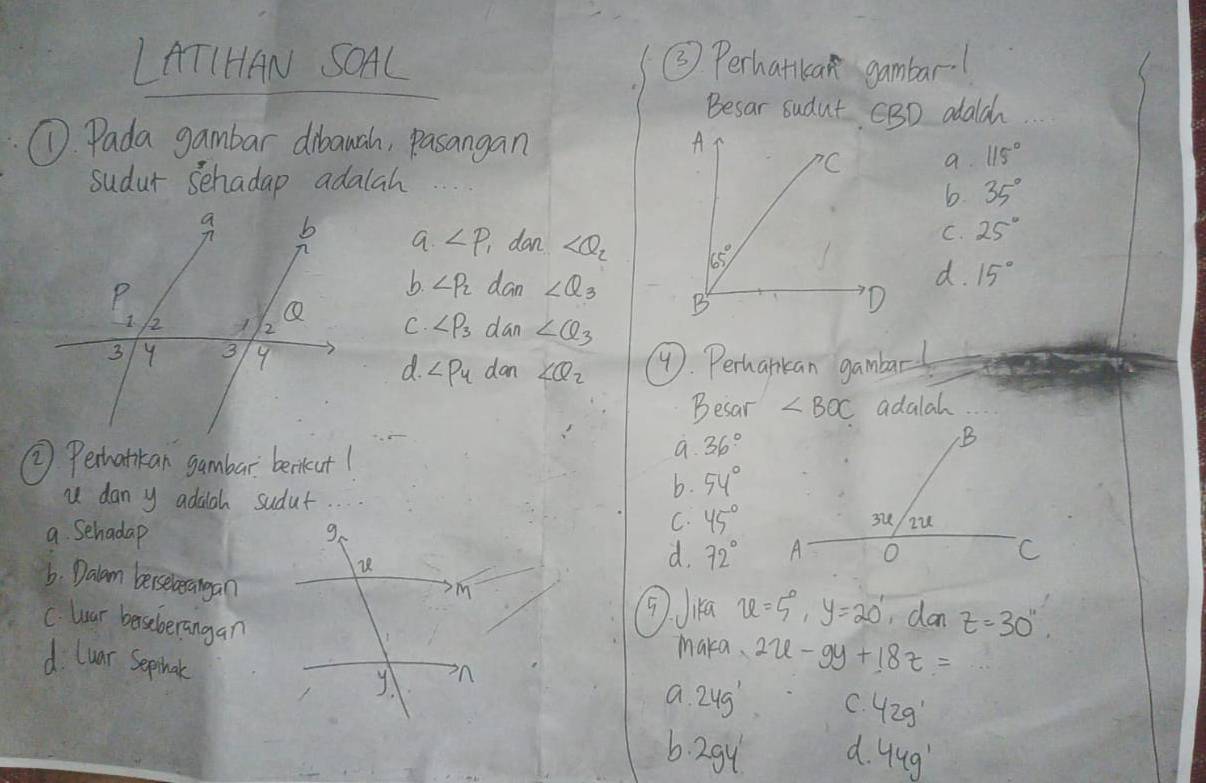 LATIHAN SOAL
① Pada gambar dibawah, pasangan
sudut sehadap adalah ....
a b
P Q
1 2 1 2
3 4 3 4
a. ∠P₁ dan ∠Q₂
b. ∠P₂ dan ∠Q₃
c. ∠P₃ dan ∠Q₃
d. ∠P₄ dan ∠Q₂
② Perhatikan gambar berikut!
x dan y adalah sudut ....
a. Sehadap
b. Dalam berseberangan
c. Luar berseberangan
d. Luar Sepihak
g
x
m
y
n
③ Perhatikan gambar!
Besar sudut CBD adalah ....
A
C
65°
B D
a. 115°
b. 35°
c. 25°
d. 15°
④ Perhatikan gambar!
Besar ∠BOC adalah ....
a. 36°
b. 54°
c. 45°
d. 72°
B
3x 2x
A O C
⑤ Jika x=5°, y=20', dan z=30".
maka 2x - 9y + 18z = ...
a. 249' c. 429'
b. 294' d. 449'